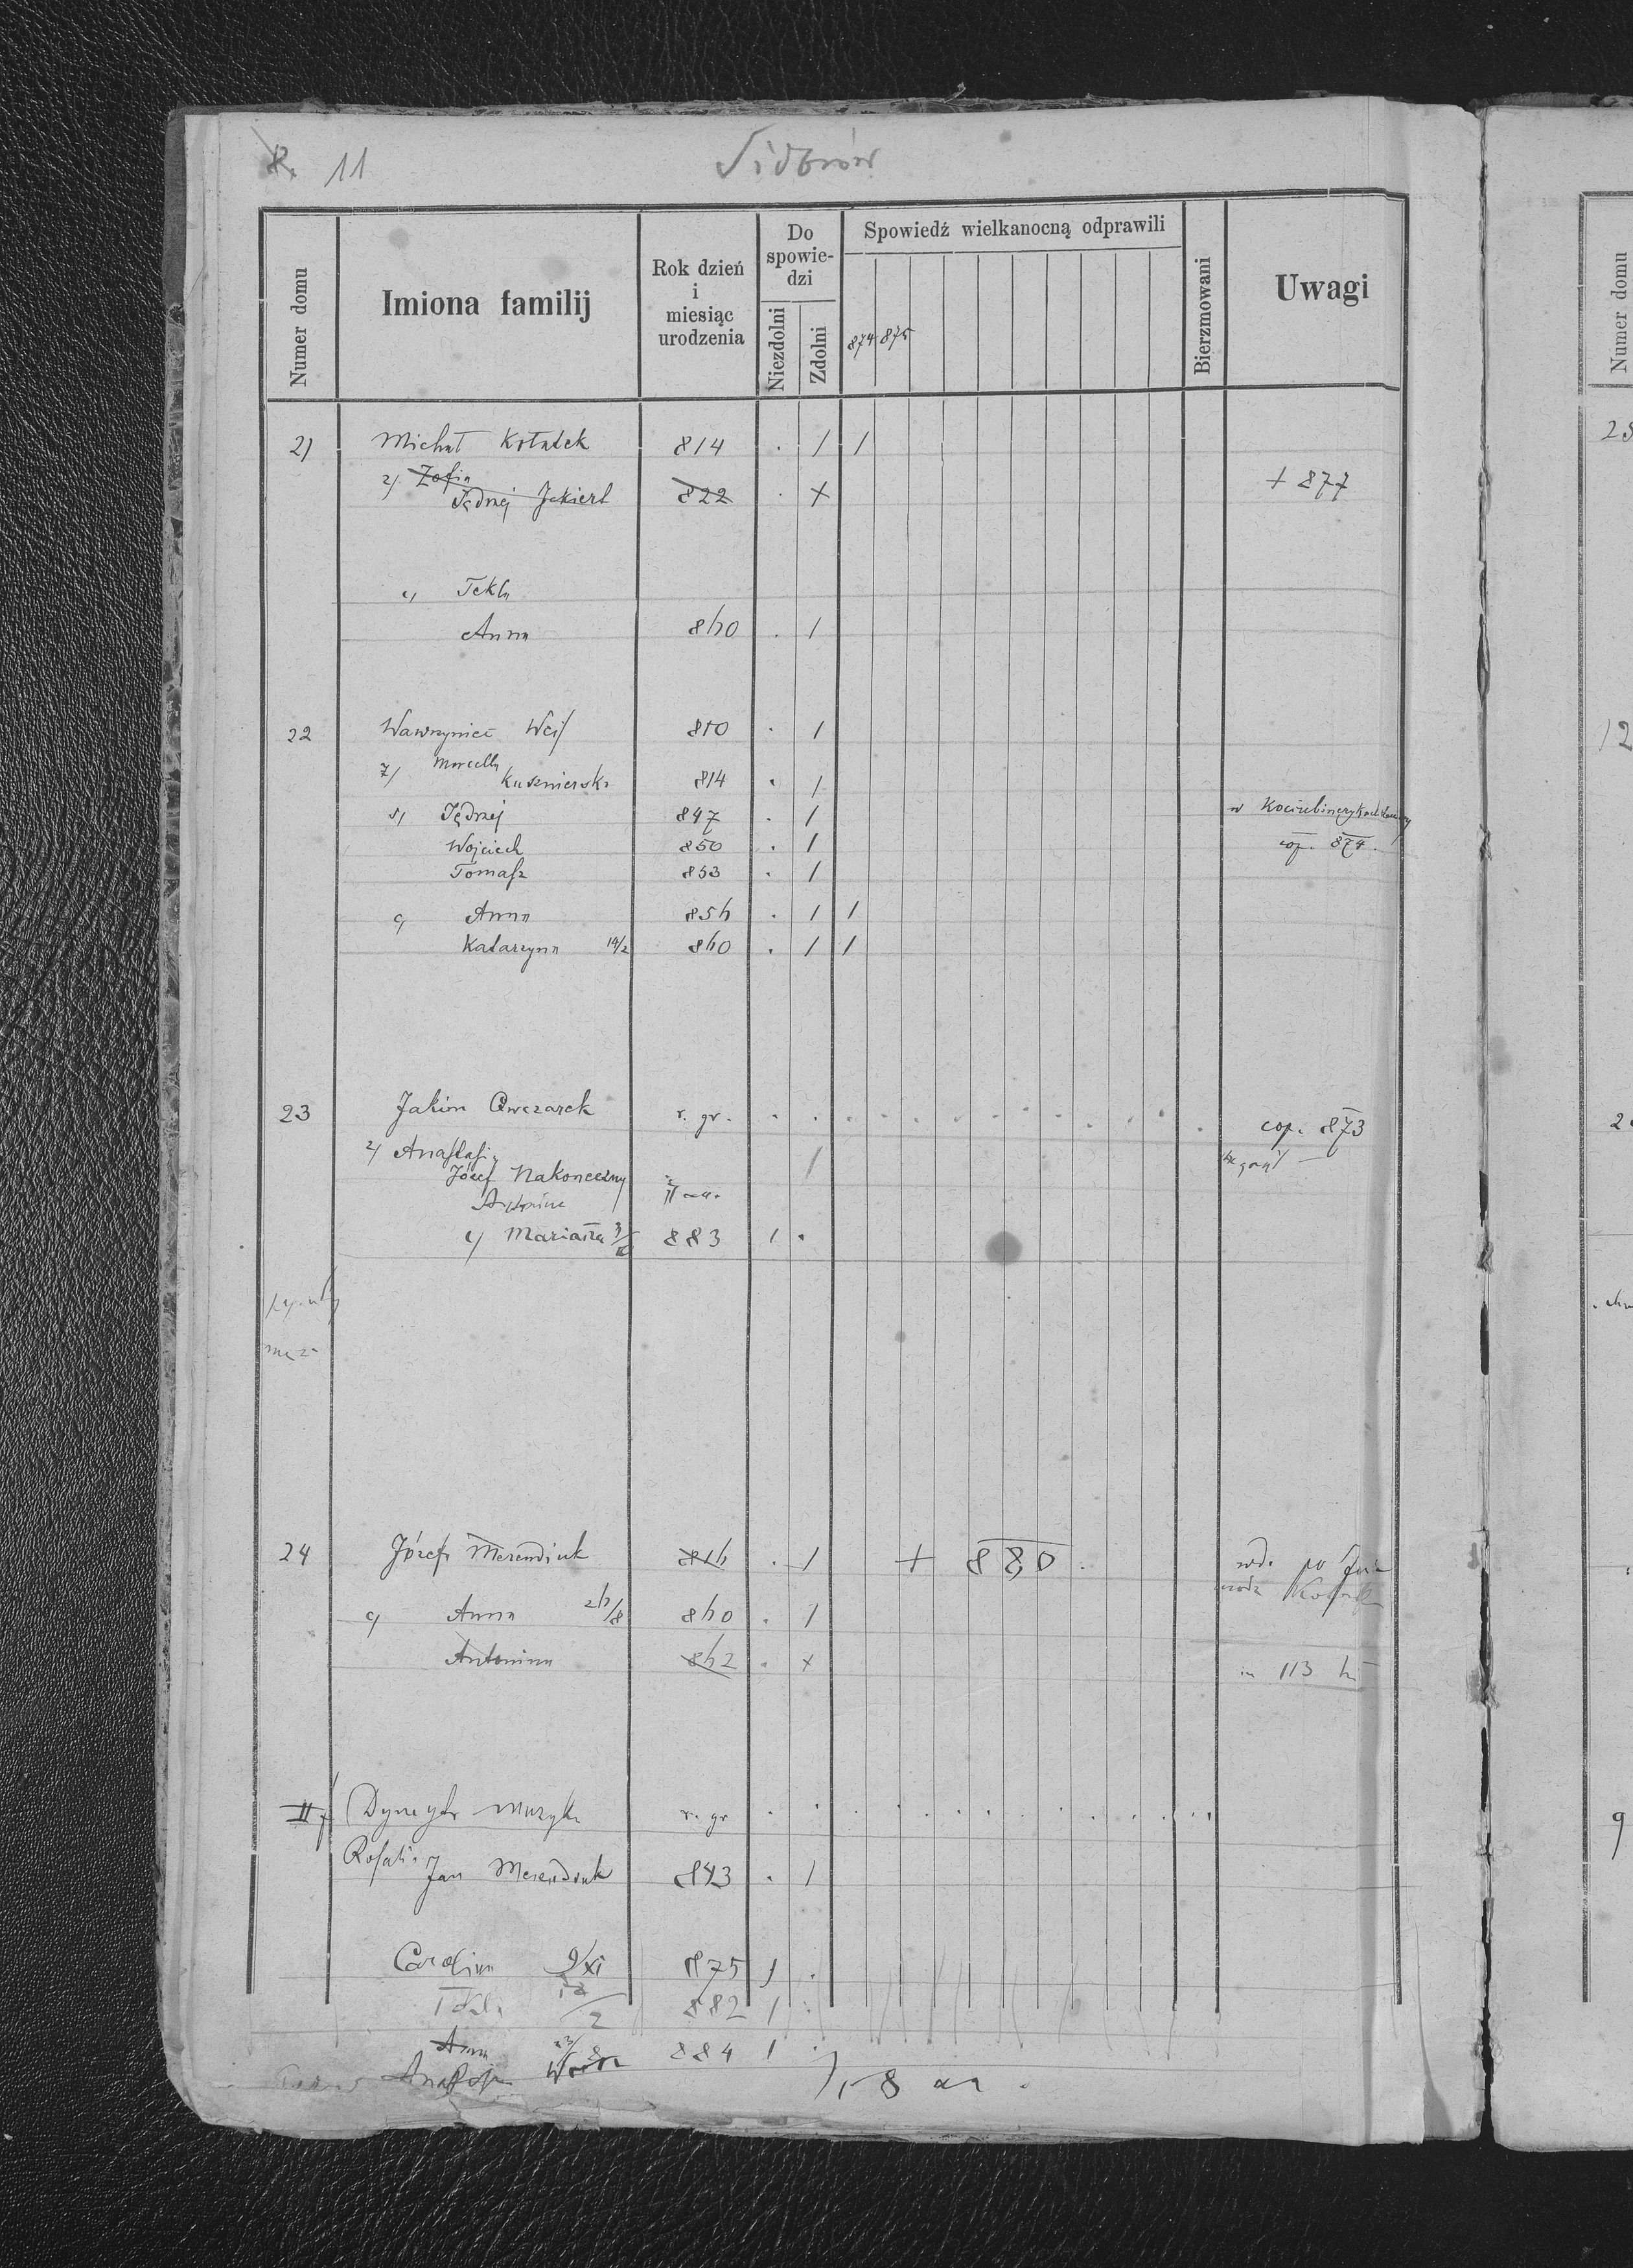 11
Sidorów
Numer domu
Imiona familij
Rok dzień i miesiąc urodzenia
Do spowiedzi
Niezdolni
Zdolni
Spowiedź wielkanocną odprawili
874 875
Bierzmowani
Uwagi
Numer domu
21 Michał Kołatek 814 . 1 1
2) Zofia
Jędrzej Jekiert 822 . + + 877
c) Tekla
Anna 860 . 1
22 Wawrzyniec Weis 810 . 1
Marcella
814 . 1
s) Jędrzej 847 . 1
Wojciech 850 . 1 cop. 874.
Tomasz 853 . 1
c) Anna 856 . 1 1
Katarzyna 14/2 860 . 1 1
23 Jakim Owczarek r. gr. cop. 873
2) Anastasia
Józef Nakoneczny
c) Marianna 883 1 .
24 Józefa Merendiuk 816 . 1 + 880 .
c) Anna 26/8 860 . 1
Antonina 862 . x in 113
II Muzyka r. gr
Rosalia
Jan Merendiuk 843 . 1
Carolina 9/XI 875 1 .
882 1 .
Anna 884 1 .